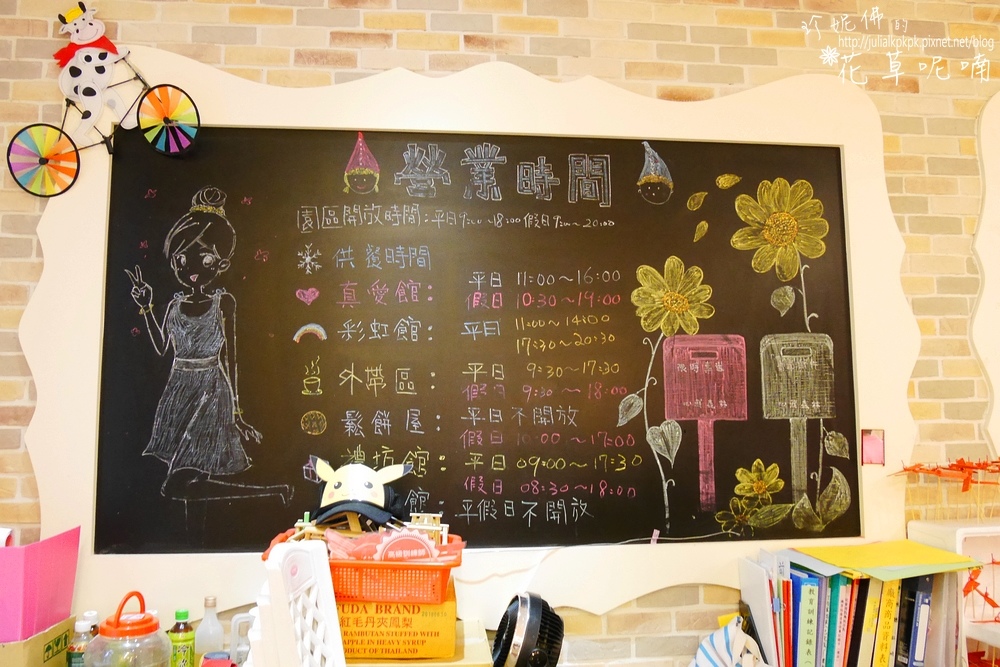 珍妮佛的
http://julialkpkpk.pixnet.net/blog
花草呢喃
營業時間
園區開放時間:平日9:00~18:00 假日9:00~20:00
供餐時間
真愛館: 平日 11:00~16:00
假日 10:30~19:00
彩虹館: 平日 11:00~14:00
17:30~20:30
外帶區: 平日 9:30~17:30
假日 9:30~18:00
鬆餅屋: 平日不開放
假日 10:00~17:00
禮坊館: 平日 09:00~17:30
假日 08:30~18:00
館: 平假日不開放
心鮮森林
BRAND
紅毛丹夾鳳梨
RAMBUTAN STUFFED WITH
APPLE IN HEAVY SYRUP
PRODUCT OF THAILAND
教育訓練記錄表
廠商商品資料表